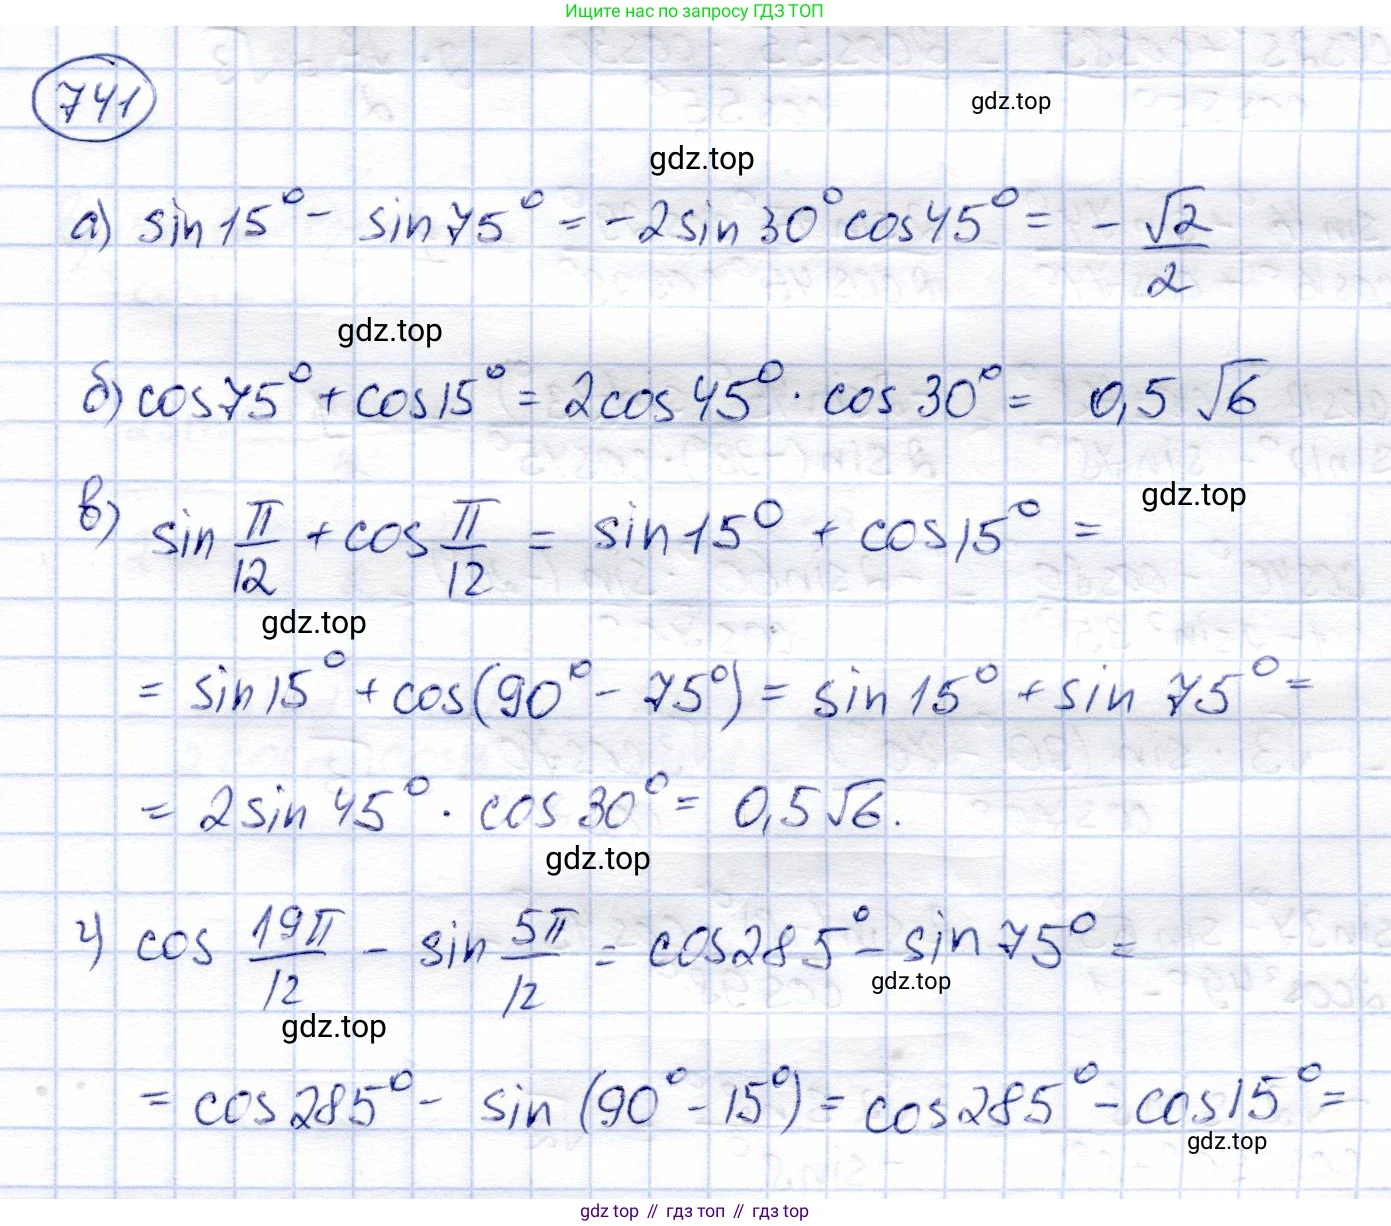 Ищите нас по запросу ГДЗ ТОП
741
gdz.top
gdz.top
а) sin 15° - sin 75° = -2 sin 30° cos 45° = - √2/2
gdz.top
б) cos 75° + cos 15° = 2 cos 45° · cos 30° = 0,5 √6
gdz.top
в) sin π/12 + cos π/12 = sin 15° + cos 15° =
gdz.top
= sin 15° + cos (90° - 75°) = sin 15° + sin 75° =
= 2 sin 45° · cos 30° = 0,5 √6.
gdz.top
г) cos 19π/12 - sin 5π/12 = cos 285° - sin 75° =
gdz.top
gdz.top
= cos 285° - sin (90° - 15°) = cos 285° - cos 15° =
gdz.top
gdz top // гдз топ // гдз top